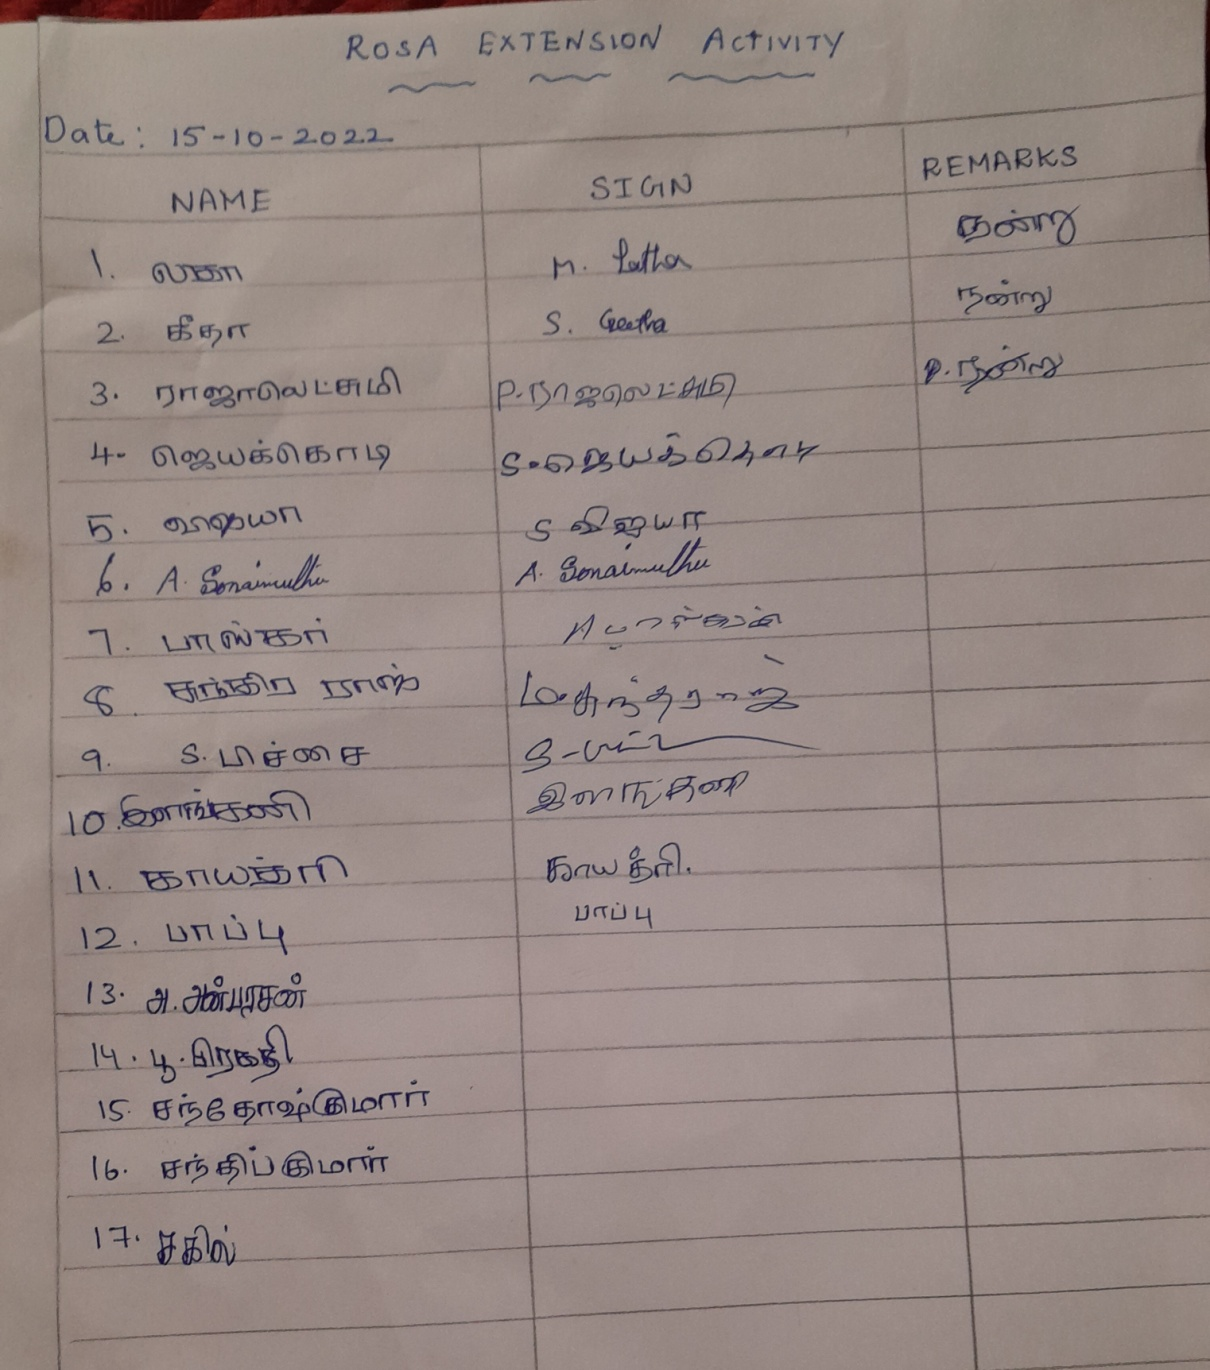 ROSA EXTENSION ACTIVITY
Date: 15-10-2022
NAME SIGN REMARKS
1. லதா M. Latha நன்று
2. கீதா S. Geetha நன்று
3. ராஜாலெட்சுமி P.ராஜலெட்சுமி P.நன்று
4. ஜெயக்கொடி S.ஜெயக்கொடி
5. விஜயா S விஜயா
6. A. Sonaimuthu A. Sonaimuthu
7. பாஸ்கர் A
8. சுந்திர ராஜ்
9. S. பிச்சை
10. இளங்கனி இளங்கனி
11. காயத்ரி காயத்ரி.
12. பாப்பு பாப்பு
13. அ. அன்பரசன்
14. பூ. பிரகதி
15. சந்தோஷ்குமார்
16. சந்திப்குமார்
17. சகில்